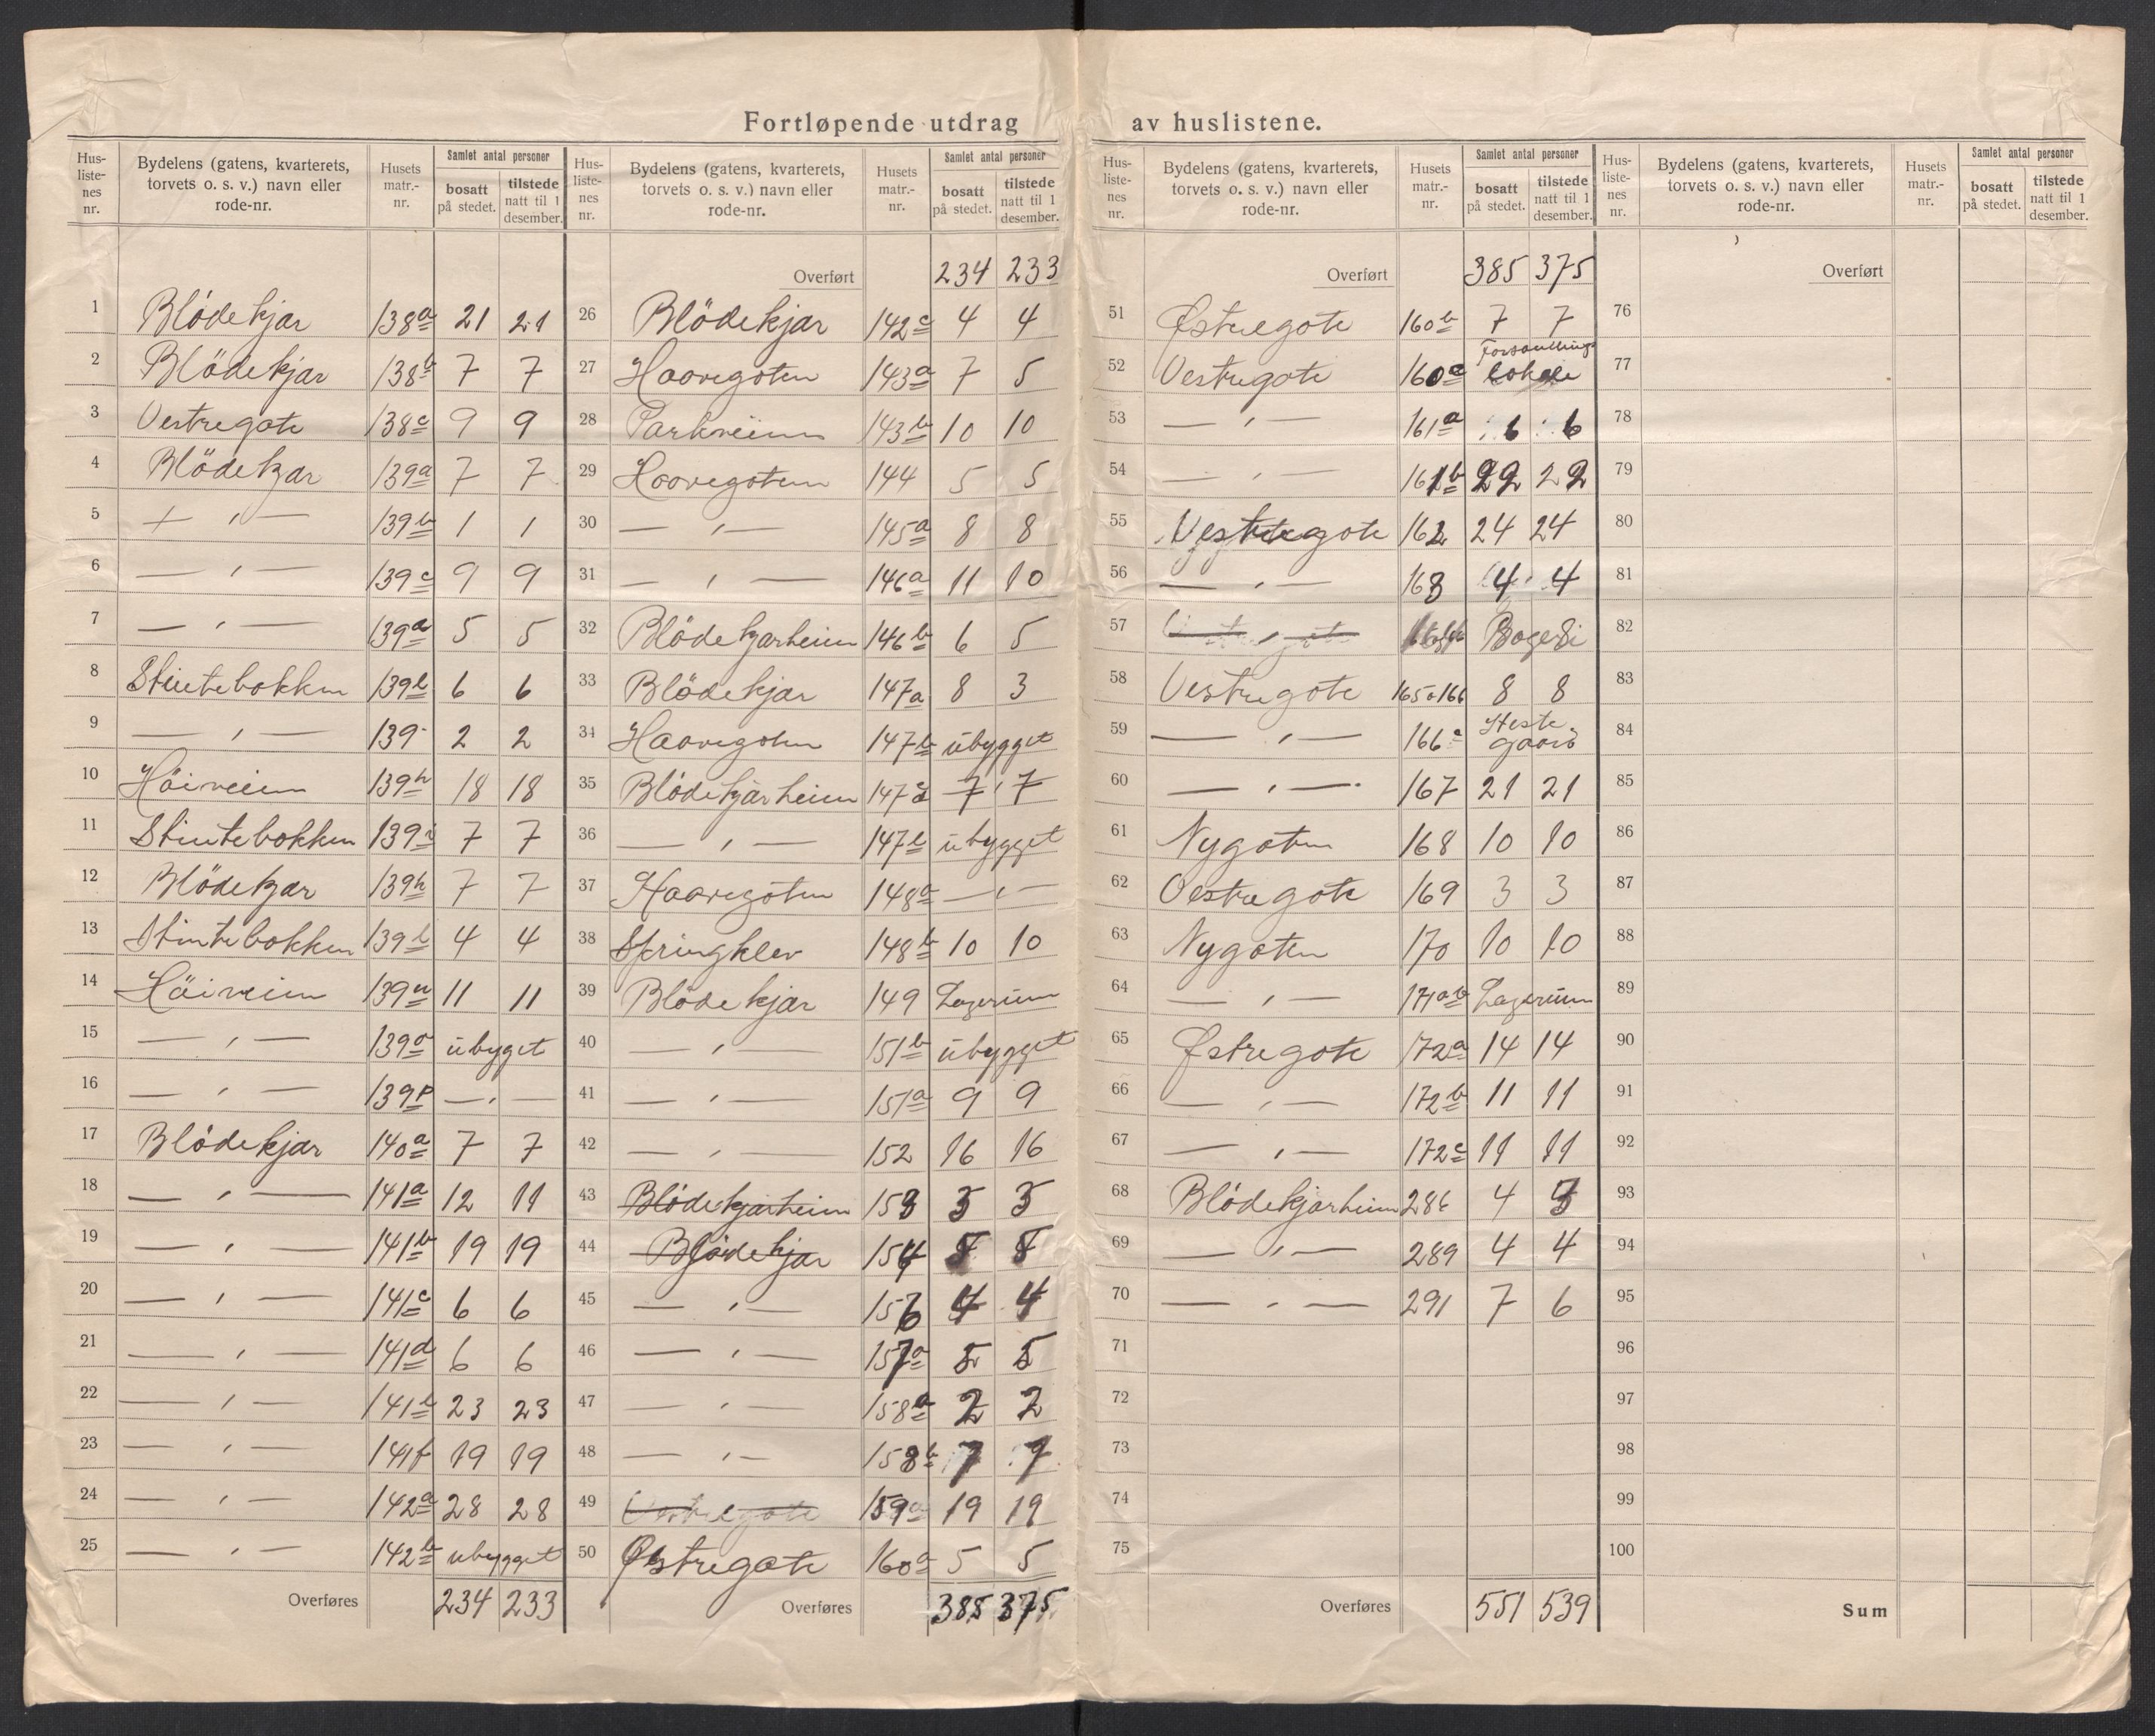 Fortløpende utdrag av huslistene.
Hus-listenes nr. | Bydelens (gatens, kvarterets, torvets o. s. v.) navn eller rode-nr. | Husets matr.-nr. | Samlet antal personer bosatt på stedet. | tilstede natt til 1 desember.
1 Blödekjar 138a 21 21
2 Blödekjar 138b 7 7
3 Vestregate 138c 9 9
4 Blödekjar 139a 7 7
5 — " — 139b 1 1
6 — " — 139c 9 9
7 — " — 139d 5 5
8 Stintebakken 139e 6 6
9 — " — 139 2 2
10 Höiveien 139h 18 18
11 Stintebakken 139i 7 7
12 Blödekjar 139k 7 7
13 Stintebakken 139l 4 4
14 Höiveien 139n 11 11
15 — " — 139o ubyget
16 — " — 139p — " —
17 Blödekjar 140a 7 7
18 — " — 141a 12 11
19 — " — 141b 19 19
20 — " — 141c 6 6
21 — " — 141d 6 6
22 — " — 141e 23 23
23 — " — 141f 19 19
24 — " — 142a 28 28
25 — " — 142b ubygget
Overføres 234 233
Hus-listenes nr. | Bydelens (gatens, kvarterets, torvets o. s. v.) navn eller rode-nr. | Husets matr.-nr. | Samlet antal personer bosatt på stedet. | tilstede natt til 1 desember.
Overført 234 233
26 Blödekjar 142c 4 4
27 Haavegaten 143a 7 5
28 Parkveien 143b 10 10
29 Haavegaten 144 5 5
30 — " — 145a 8 8
31 — " — 146a 11 10
32 Blödekjarheien 146b 6 5
33 Blödekjar 147a 8 3
34 Haavegaten 147b ubygget
35 Blödekjarheien 147d 7 7
36 — " — 147e ubygget
37 Haavegaten 148a — " —
38 Springklev 148b 10 10
39 Blödekjar 149 Lagerrum
40 — " — 151b ubygget
41 — " — 151a 9 9
42 — " — 152 16 16
43 Blödekjarheien 153 3 3
44 Blödekjar 154 8 8
45 — " — 156 4 4
46 — " — 157a 5 5
47 — " — 158a 2 2
48 — " — 158b 7 7
49 Vestregate 159a 19 19
50 Østregate 160a 5 5
Overføres 385 375
Hus-listenes nr. | Bydelens (gatens, kvarterets, torvets o. s. v.) navn eller rode-nr. | Husets matr.-nr. | Samlet antal personer bosatt på stedet. | tilstede natt til 1 desember.
Overført 385 375
51 Østregate 160b 7 7
52 Vestregate 160c Forsamlings lokale
53 — " — 161a 6 6
54 — " — 161b 22 22
55 Vestregate 162 24 24
56 — " — 163 4 4
57 Bageri
58 Vestregate 165o166 8 8
59 — " — 166c Heste gaard
60 — " — 167 21 21
61 Nygaten 168 10 10
62 Vestregate 169 3 3
63 Nygaten 170 10 10
64 — " — 171ab Lagerrum
65 Østregate 172a 14 14
66 — " — 172b 11 11
67 — " — 172c 11 11
68 Blödekjarheien 286 4 3
69 — " — 289 4 4
70 — " — 291 7 6
71
72
73
74
75
Overføres 551 539
Hus-listenes nr. | Bydelens (gatens, kvarterets, torvets o. s. v.) navn eller rode-nr. | Husets matr.-nr. | Samlet antal personer bosatt på stedet. | tilstede natt til 1 desember.
Overført
76
77
78
79
80
81
82
83
84
85
86
87
88
89
90
91
92
93
94
95
96
97
98
99
100
Sum